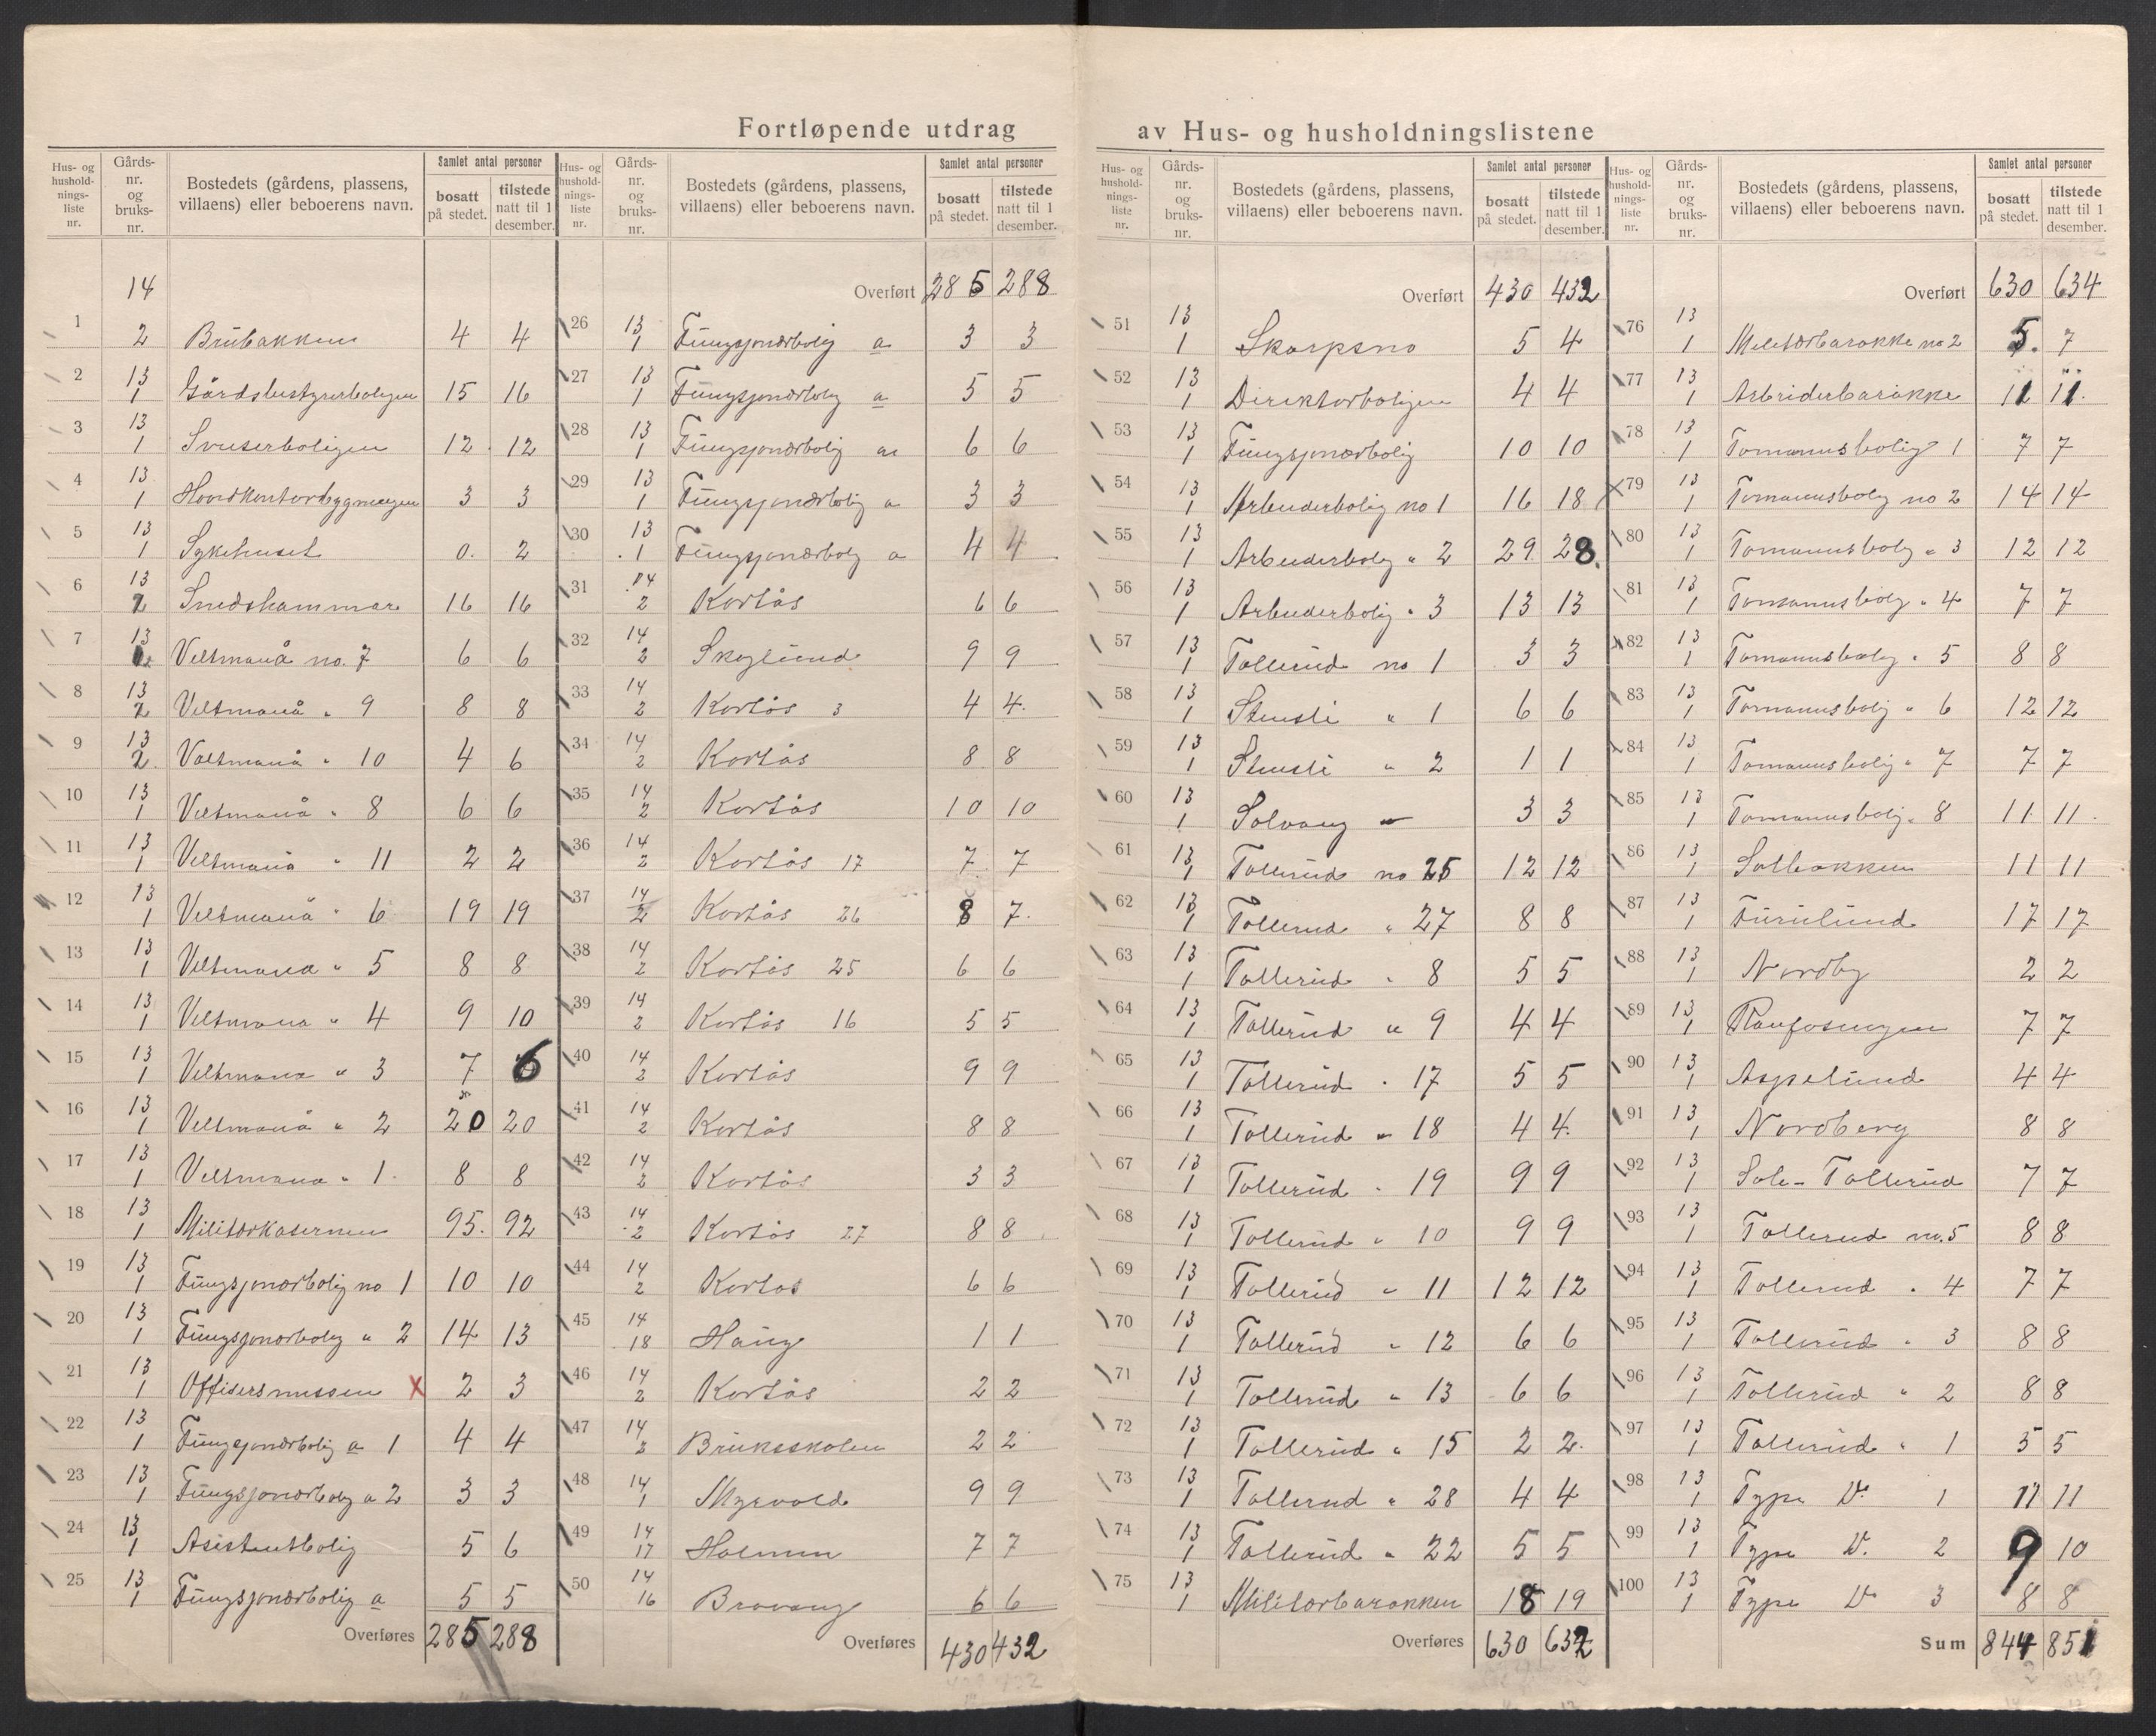 Fortløpende utdrag av Hus- og husholdningslistene
Hus- og husholdningsliste nr. Gårdsnr. og bruksnr. Bostedets (gårdens, plassens, villaens) eller beboerens navn. Samlet antal personer bosatt på stedet. tilstede natt til 1 desember.
1 14 2 Brübakken 4 4
2 13 1 Gårdsbestyrerboligen 15 16
3 13 1 Sveiserboligen 12 12
4 13 1 Hovedkontorbygningen 3 3
5 13 1 Sykehuset 0 2
6 13 2 Smedshammar 16 16
7 13 Veltmanå no. 7 6 6
8 13 2 Veltmanå " 9 8 8
9 13 2 Veltmanå " 10 4 6
10 13 1 Veltmanå " 8 6 6
11 13 1 Veltmanå " 11 2 2
12 13 1 Veltmanå " 6 19 19
13 13 1 Veltmana " 5 8 8
14 13 1 Veltmana " 4 9 10
15 13 1 Veltmana " 3 7 6
16 13 1 Veltmanå " 2 20 20
17 13 1 Veltmana " 1 8 8
18 13 1 Militærkasernen 95 92
19 13 1 Füngsjonærbolig no 1 10 10
20 13 1 Füngsjonærbolig " 2 14 13
21 13 1 Offisersmessen X 2 3
22 13 1 Füngsjonærbolig a 1 4 4
23 13 1 Füngsjonærbolig a 2 3 3
24 13 1 Asistentbolig 5 6
25 13 1 Füngsjonærbolig a 5 5
Overføres 285 288
Hus- og husholdningsliste nr. Gårdsnr. og bruksnr. Bostedets (gårdens, plassens, villaens) eller beboerens navn. Samlet antal personer bosatt på stedet. tilstede natt til 1 desember.
Overført 285 288
26 13 1 Füngsjonærbolig a 3 3
27 13 1 Füngsjonærbolig a 5 5
28 13 1 Füngsjonærbolig a 6 6
29 13 1 Füngsjonærbolig a 3 3
30 13 1 Füngsjonærbolig a 4 4
31 14 2 Kortås 6 6
32 14 2 Skoglünd 9 9
33 14 2 Kortås 3 4 4
34 14 2 Kortås 8 8
35 14 2 Kortås 10 10
36 14 2 Kortås 17 7 7
37 14 2 Kortås 26 8 7
38 14 2 Kortås 25 6 6
39 14 2 Kortås 16 5 5
40 14 2 Kortås 9 9
41 14 2 Kortås 8 8
42 14 2 Kortås 3 3
43 14 2 Kortås 27 8 8
44 14 2 Kortas 6 6
45 14 18 Haüg 1 1
46 14 2 Kortås 2 2
47 14 2 Brüksskolen 2 2
48 14 1 Myrvold 9 9
49 14 17 Holmen 7 7
50 14 16 Bravang 6 6
Overføres 430 432
Hus- og husholdningsliste nr. Gårdsnr. og bruksnr. Bostedets (gårdens, plassens, villaens) eller beboerens navn. Samlet antal personer bosatt på stedet. tilstede natt til 1 desember.
Overført 430 432
51 13 1 Skarpsno 5 4
52 13 1 Direktørboligen 4 4
53 13 1 Füngsjonærbolig 10 10
54 13 1 Arbeiderbolig no 1 16 18
55 13 1 Arbeiderbolig " 2 29 28
56 13 1 Arbeiderbolig " 3 13 13
57 13 1 Tollerüd no 1 3 3
58 13 1 Stensli " 1 6 6
59 13 1 Stensli " 2 1 1
60 13 1 Solvang 3 3
61 13 1 Tollerüd no 25 12 12
62 13 1 Tollerud " 27 8 8
63 13 1 Tollerüd " 8 5 5
64 13 1 Tollerüd " 9 4 4
65 13 1 Tollerüd " 17 5 5
66 13 1 Tollerüd " 18 4 4
67 13 1 Tollerüd " 19 9 9
68 13 1 Tollerüd " 10 9 9
69 13 1 Tollerüd " 11 12 12
70 13 1 Tollerüd " 12 6 6
71 13 1 Tollerüd " 13 6 6
72 13 1 Tollerüd " 15 2 2
73 13 1 Tollerud " 28 4 4
74 13 1 Tollerüd " 22 5 5
75 13 1 Militærbarakken 18 19
Overføres 630 632
Hus- og husholdningsliste nr. Gårdsnr. og bruksnr. Bostedets (gårdens, plassens, villaens) eller beboerens navn. Samlet antal personer bosatt på stedet. tilstede natt til 1 desember.
Overført 630 634
76 13 1 Militærbarakke no 2 5 7
77 13 1 Arbeiderbarakke 11 11
78 13 1 Tomannsbolig 1 7 7
79 13 1 Tomannsbolig no 2 14 14
80 13 1 Tomannsbolig " 3 12 12
81 13 1 Tomannsbolig " 4 7 7
82 13 1 Tomannsbolig " 5 8 8
83 13 1 Tomannsbolig " 6 12 12
84 13 1 Tomannsbolig " 7 7 7
85 13 1 Tomannsbolig " 8 11 11
86 13 1 Solbakken 11 11
87 13 1 Fürülünd 17 17
88 13 1 Nordby 2 2
89 13 1 Raufosengen 7 7
90 13 1 Aspelünd 4 4
91 13 1 Nordberg 8 8
92 13 1 Sole-Tollerüd 7 7
93 13 1 Tollerud no. 5 8 8
94 13 1 Tollerud " 4 7 7
95 13 1 Tollerüd " 3 8 8
96 13 1 Tollerüd " 2 8 8
97 13 1 Tollerüd " 1 5 5
98 13 1 Type V. 1 11 11
99 13 1 Type V. 2 9 10
100 13 1 Type V 3 8 8
Sum 844 851